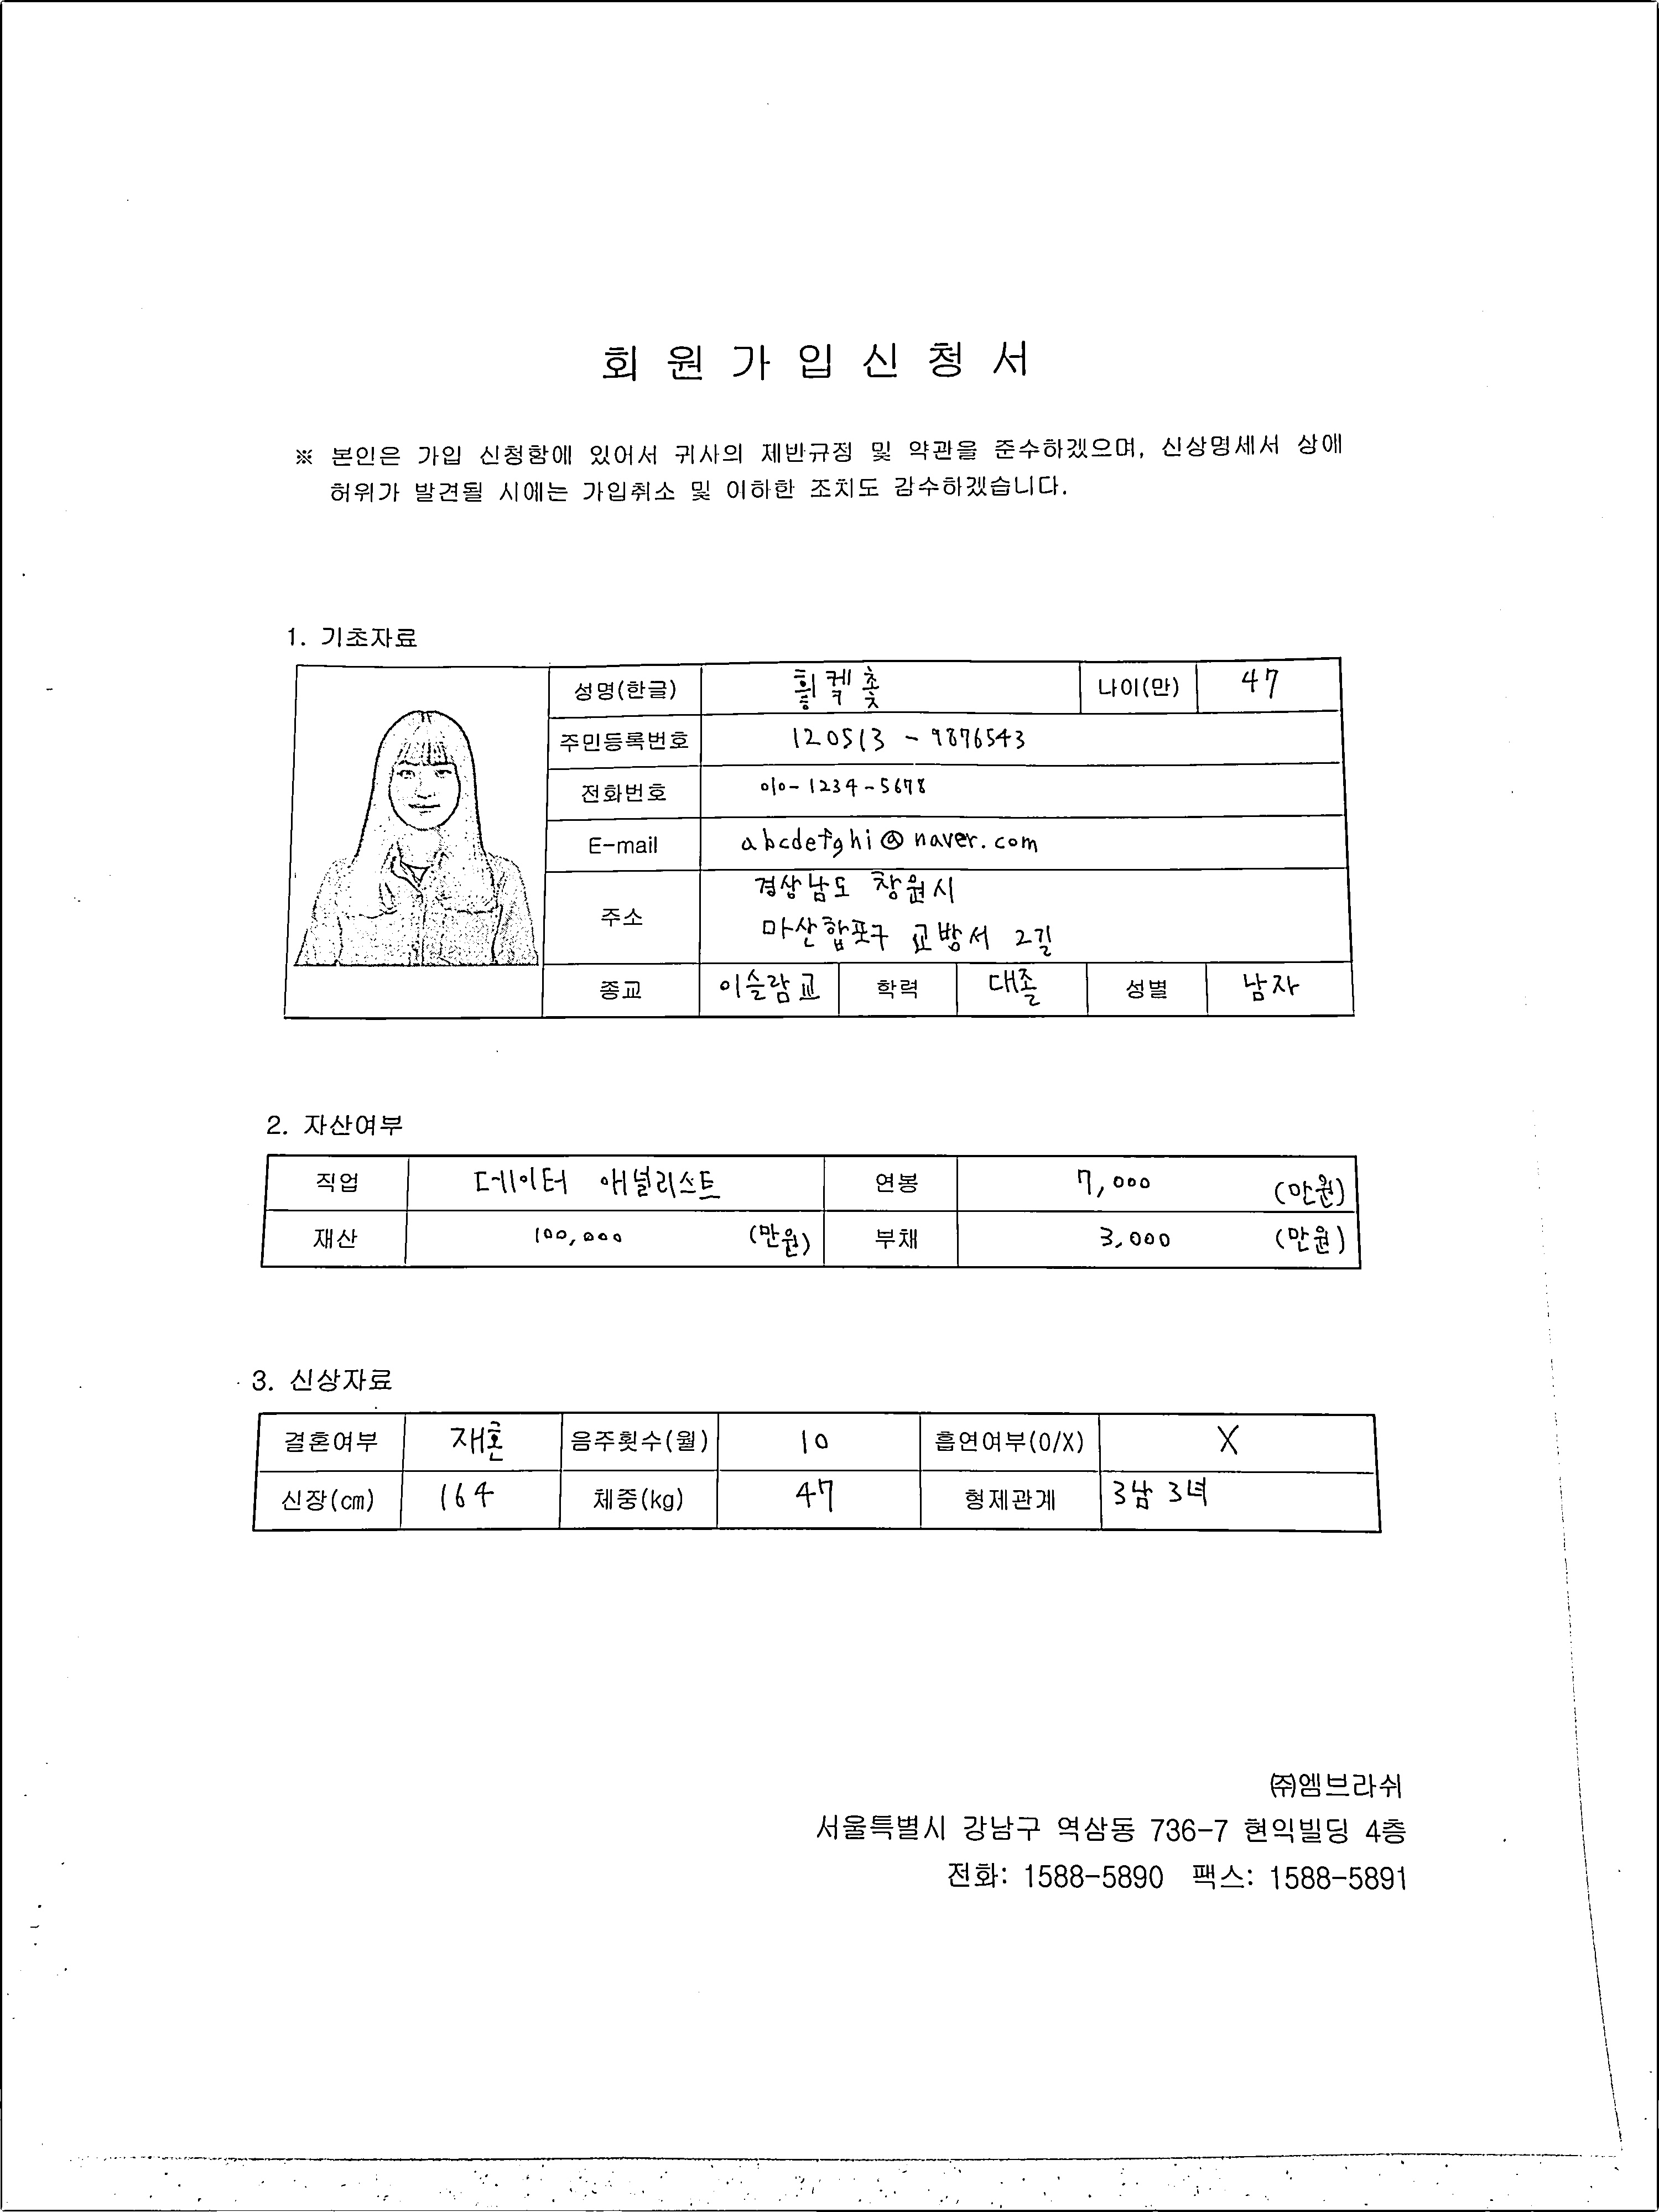 회 원 가 입 신 청 서
※ 본인은 가입 신청함에 있어서 귀사의 제반규정 및 약관을 준수하겠으며, 신상명세서 상에
허위가 발견될 시에는 가입취소 및 이하한 조치도 감수하겠습니다.
1. 기초자료
성명(한글) 나이(만) 47
주민등록번호 120513 - 9876543
전화번호 010-1234-5678
E-mail abcdefghi@naver.com
주소 경상남도 창원시
마산합포구 교방서 2길
종교 이슬람교 학력 대졸 성별 남자
2. 자산여부
직업 데이터 애널리스트 연봉 7,000 (만원)
재산 100,000 (만원) 부채 3,000 (만원)
3. 신상자료
결혼여부 재혼 음주횟수(월) 10 흡연여부(O/X) X
신장(cm) 164 체중(kg) 47 형제관계 3남 3녀
㈜엠브라쉬
서울특별시 강남구 역삼동 736-7 현익빌딩 4층
전화: 1588-5890 팩스: 1588-5891